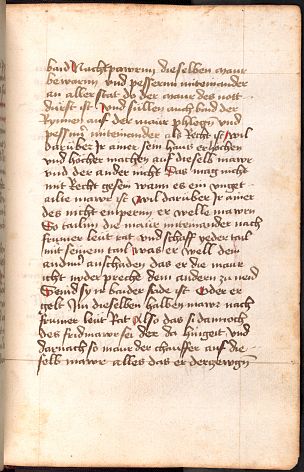 baid Nachtpawrnn dieselben maur
bewarnn vnd pessernn miteinander
an aller stat do der maur des nott
durft ist Vnd sullen auch baid der
Rynnen auf der maur phlegn vnd
pessnn miteinander als Recht ist Wil
darüber Jr ainer sein haus erhohen
vnd hocher machen auf dieselb mawr
vnd der ander nicht Das mag nicht
mit Recht gesein wann es ein vnget
ailte mawr ist Wil darüber Jr ainer
des nicht enpernn er welle mawrn
So tailnn die maur miteinander nach
frumer leut rat vnd schaff yeder tail
mit seinem tail was er well dem
andnn anschaden das er die maur
icht nider preche dem andern zu neid
Sennd sy nu baider seide ist Oder er
gelt Jm dieselben halben mawr nach
frumer leut Rat Also das s dannoch
des fridmawr sei der da hingeit vnd
darnach so maur der chauffer auf die
selb mawr alles das er